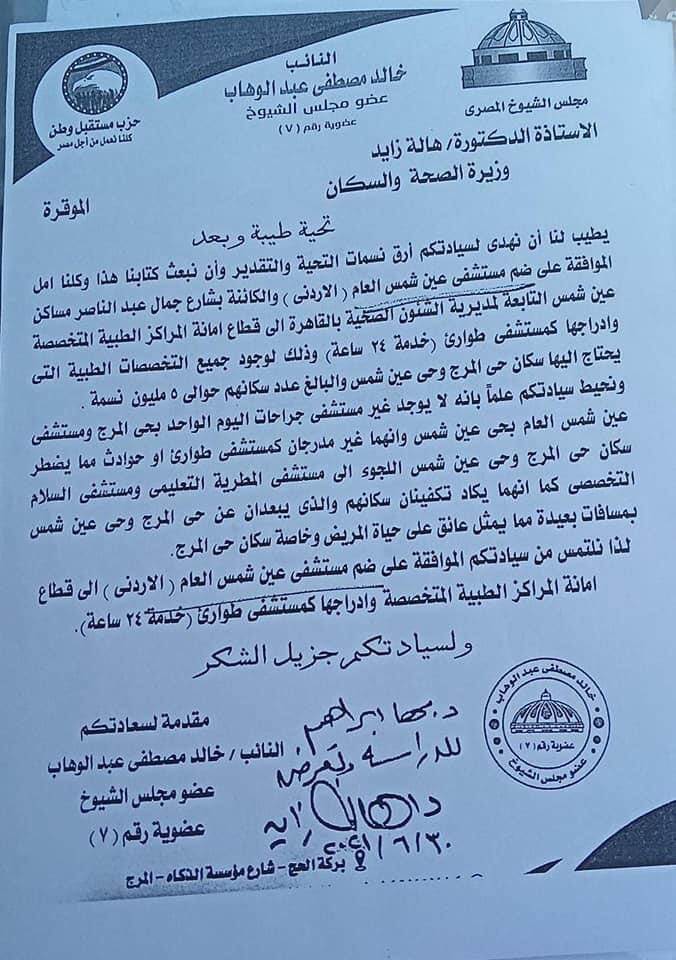 النائب
خالد مصطفى عبد الوهاب
عضو مجلس الشيوخ
عضوية رقم (٧)
مجلس الشيوخ المصرى
حزب مستقبل وطن
كلنا نعمل من أجل مصر
الاستاذة الدكتورة/ هالة زايد
وزيرة الصحة والسكان
الموقرة
تحية طيبة وبعد
يطيب لنا أن نهدى لسيادتكم أرق نسمات التحية والتقدير وأن نبعث كتابنا هذا وكلنا امل
الموافقة على ضم مستشفى عين شمس العام (الاردنى) والكائنة بشارع جمال عبد الناصر مساكن
عين شمس التابعة لمديرية الشئون الصحية بالقاهرة الى قطاع امانة المراكز الطبية المتخصصة
وادراجها كمستشفى طوارئ (خدمة ٢٤ ساعة) وذلك لوجود جميع التخصصات الطبية التى
يحتاج اليها سكان حى المرج وحى عين شمس والبالغ عدد سكانهم حوالى ٥ مليون نسمة .
ونحيط سيادتكم علماً بانه لا يوجد غير مستشفى جراحات اليوم الواحد بحى المرج ومستشفى
عين شمس العام بحى عين شمس وانهما غير مدرجان كمستشفى طوارئ او حوادث مما يضطر
سكان حى المرج وحى عين شمس اللجوء الى مستشفى المطرية التعليمى ومستشفى السلام
التخصصى كما انهما يكاد تكفينان سكانهم والذى يبعدان عن حى المرج وحى عين شمس
بمسافات بعيدة مما يمثل عائق على حياة المريض وخاصة سكان حى المرج.
لذا نلتمس من سيادتكم الموافقة على ضم مستشفى عين شمس العام (الاردنى) الى قطاع
امانة المراكز الطبية المتخصصة وادراجها كمستشفى طوارئ (خدمة ٢٤ ساعة).
ولسيادتكم جزيل الشكر
مقدمة لسعادتكم
النائب / خالد مصطفى عبد الوهاب
عضو مجلس الشيوخ
عضوية رقم (٧)
د. مها ابراهيم
للدراسة والعرض
د/ هالة زايد
٢٠٢١/٦/٣٠
خالد مصطفى عبد الوهاب
عضوية رقم (٧)
عضو مجلس الشيوخ
بركة الحج - شارع مؤسسة الزكاه - المرج